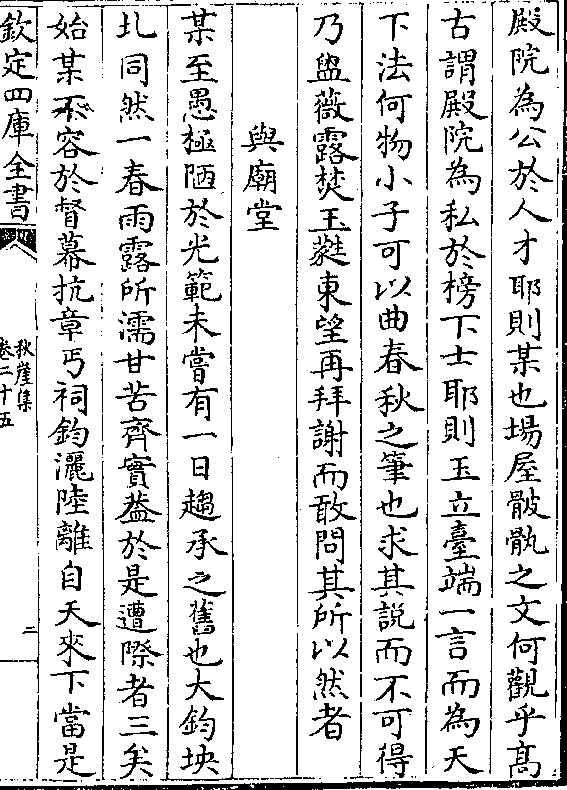 殿院為公於人才耶則某也場屋骳骫之文何觀乎髙
古謂殿院為私於榜下士耶則玉立臺端一言而為天
下法何物小子可以曲春秋之筆也求其説而不可得
乃盥薇露焚玉蕤東望再拜謝而敢問其所以然者
與廟堂
某至愚極陋於光範未嘗有一日趨承之舊也大鈞坱
圠同然一春雨露所濡甘苦齊實葢於是遭際者三矣
始某不容於督幕抗章丐祠鈞灑陸離自天來下當是
欽定四庫全書
秋崖集
卷二十五
二